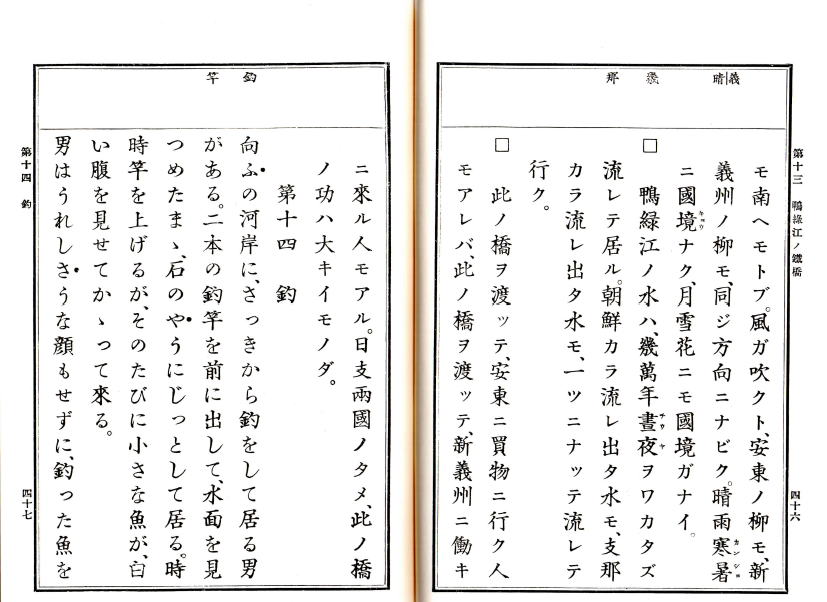 義
晴
幾
那
第十三 鴨綠江ノ鐵橋
四十六
モ南ヘモトブ。風ガ吹クト、安東ノ柳モ、新
義州ノ柳モ、同ジ方向ニナビク。晴雨寒暑カンショ
ニ國境キョウナク、月雪花ニモ國境ガナイ。
□ 鴨綠江ノ水ハ、幾萬年晝夜チウヤヲワカタズ
流レテ居ル。朝鮮カラ流レ出タ水モ、支那
カラ流レ出タ水モ、一ツニナッテ流レテ
行ク。
□ 此ノ橋ヲ渡ッテ、安東ニ買物ニ行ク人
モアレバ、此ノ橋ヲ渡ッテ、新義州ニ働キ
釣
竿
ニ來ル人モアル。日支兩國ノタメ、此ノ橋
ノ功ハ大キイモノダ。
第十四 釣
向ふの河岸に、さっきから釣をして居る男
がある。二本の釣竿を前に出して、水面を見
つめたまゝ、石のやうにじっとして居る。時
時竿を上げるが、そのたびに小さな魚が、白
い腹を見せてかゝって來る。
男はうれしさうな顏もせずに、釣った魚を
第十四 釣
四十七